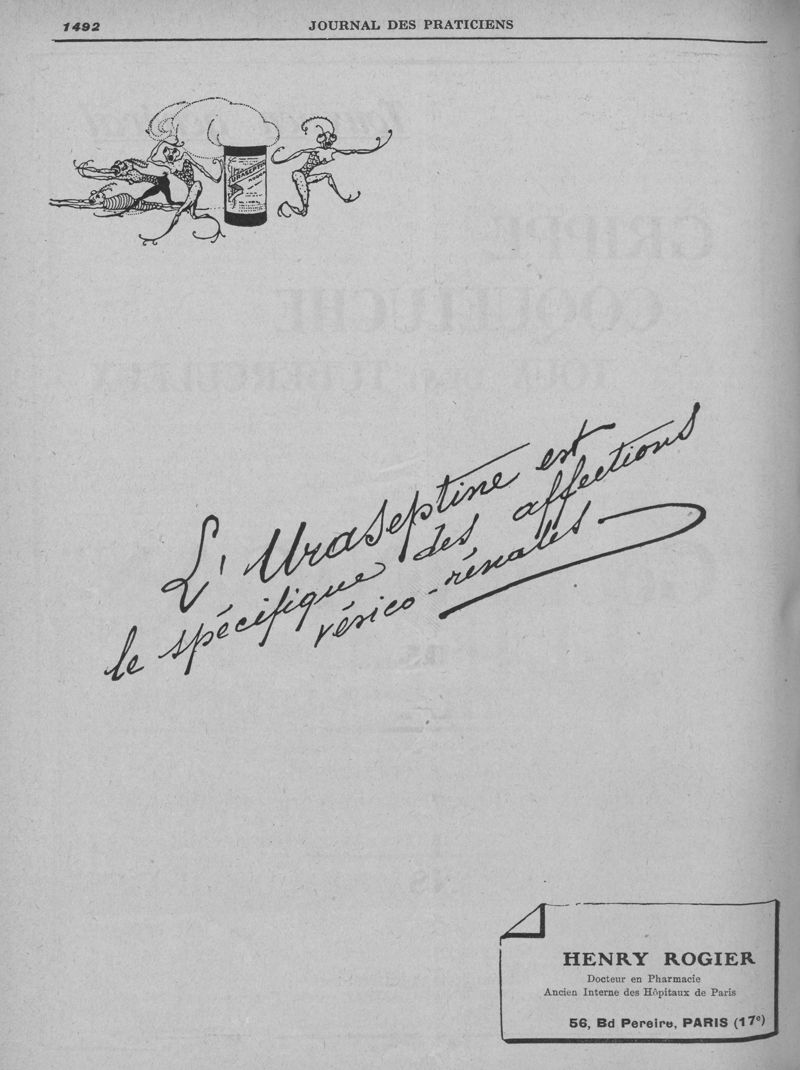 1492
JOURNAL DES PRATICIENS
URASEPTINE
ROGIER
L'Uraseptine est
le spécifique des affections
vésico-rénales
HENRY ROGIER
Docteur en Pharmacie
Ancien Interne des Hôpitaux de Paris
56, Bd Pereire, PARIS (17e)